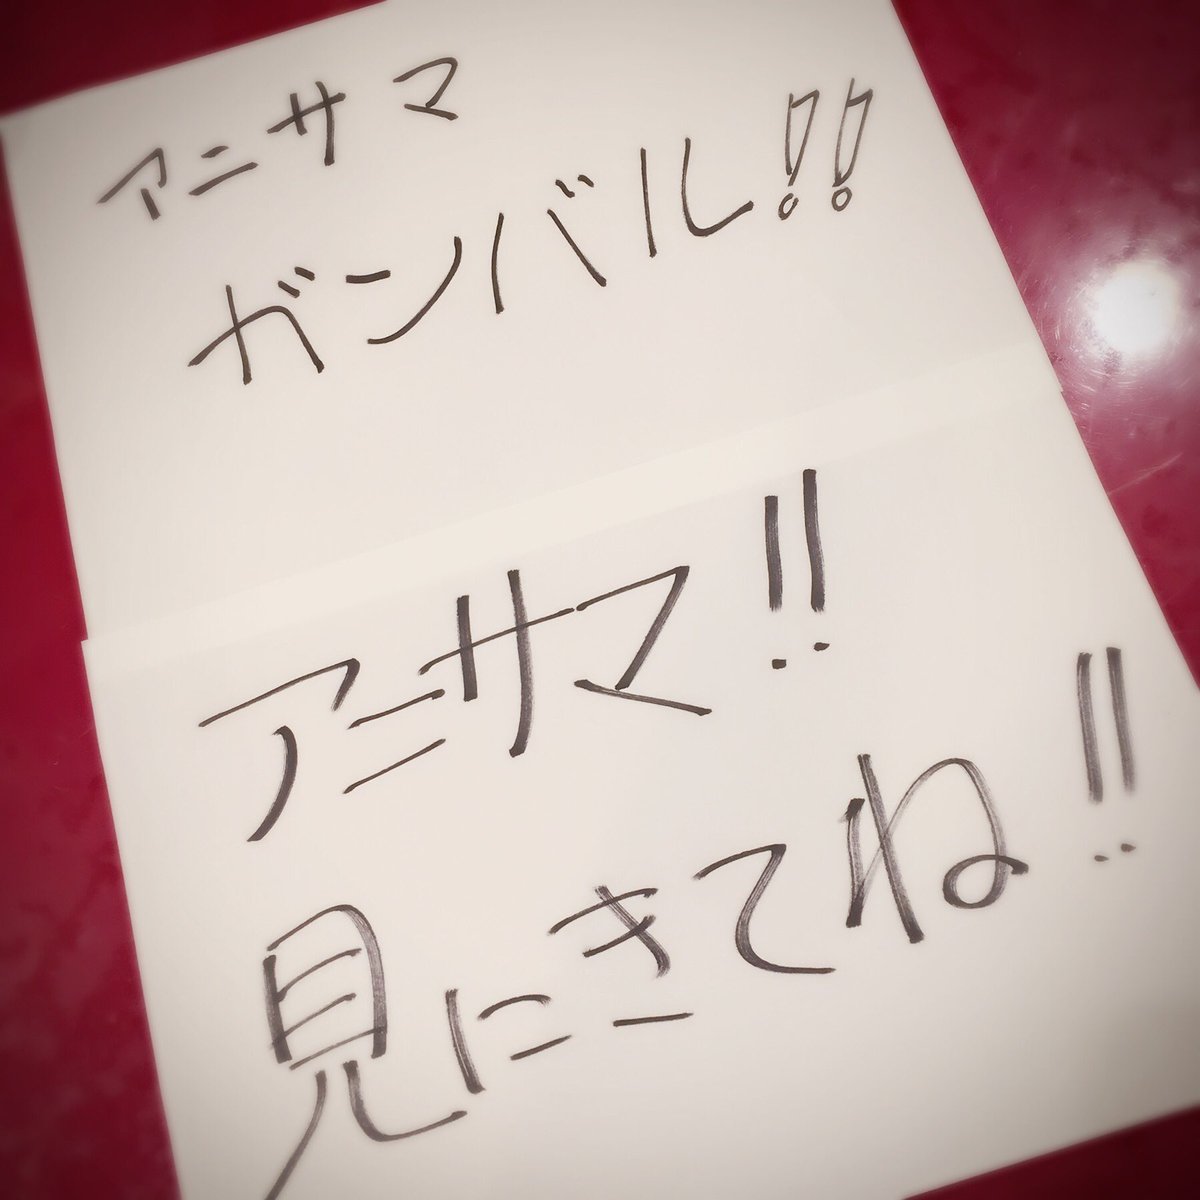 アニサマ
ガンバル!!
アニサマ!!
見にきてね!!